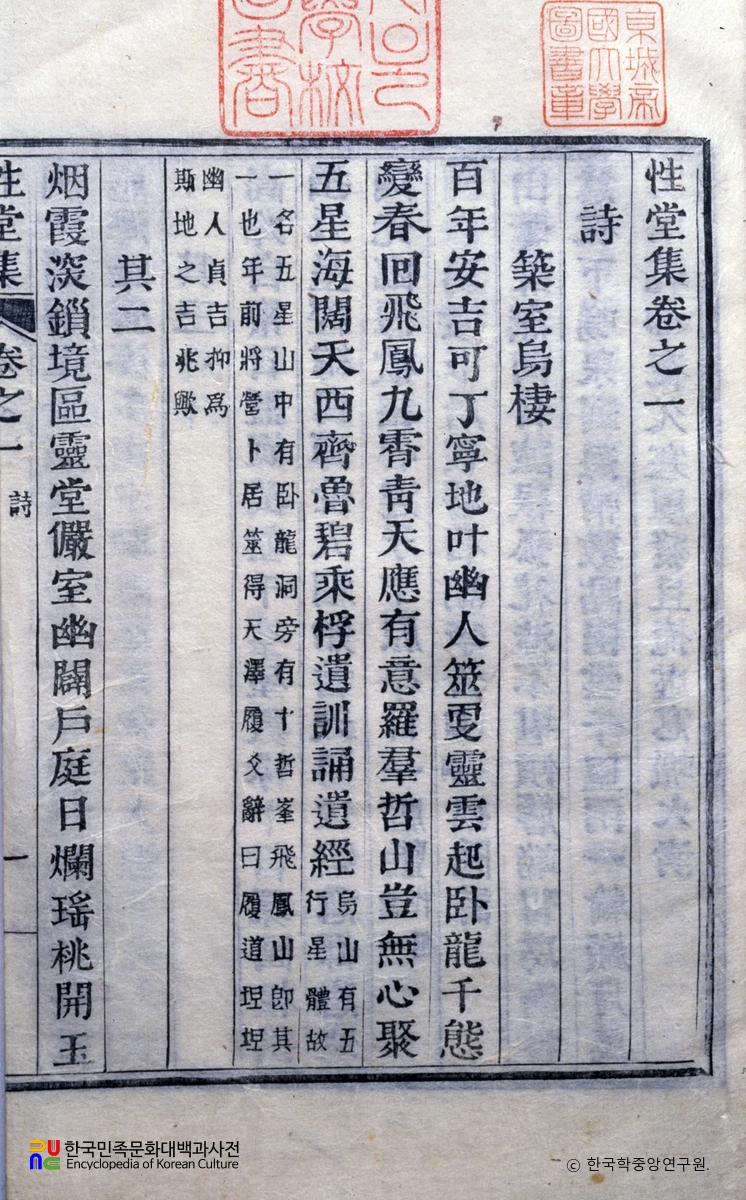 京城帝
國大學
圖書章
性堂集卷之一
詩
築室烏棲
百年安吉可丁寧地叶幽人筮更靈雲起卧龍千態
變春回飛鳳九霄青天應有意羅羣哲山豈無心聚
五星海闊天西齊魯碧乘桴遺訓誦遺經烏山有五
行星體故
一名五星山中有卧龍洞旁有十哲峯飛鳳山卽其
一也年前將營卜居筮得天澤履爻辭曰履道坦坦
幽人貞吉抑爲
斯地之吉兆歟
其二
烟霞淡鎖境區靈堂儼室幽闢戶庭日爛瑤桃開玉
性堂集 卷之一 詩 一
한국민족문화대백과사전
Encyclopedia of Korean Culture
© 한국학중앙연구원.